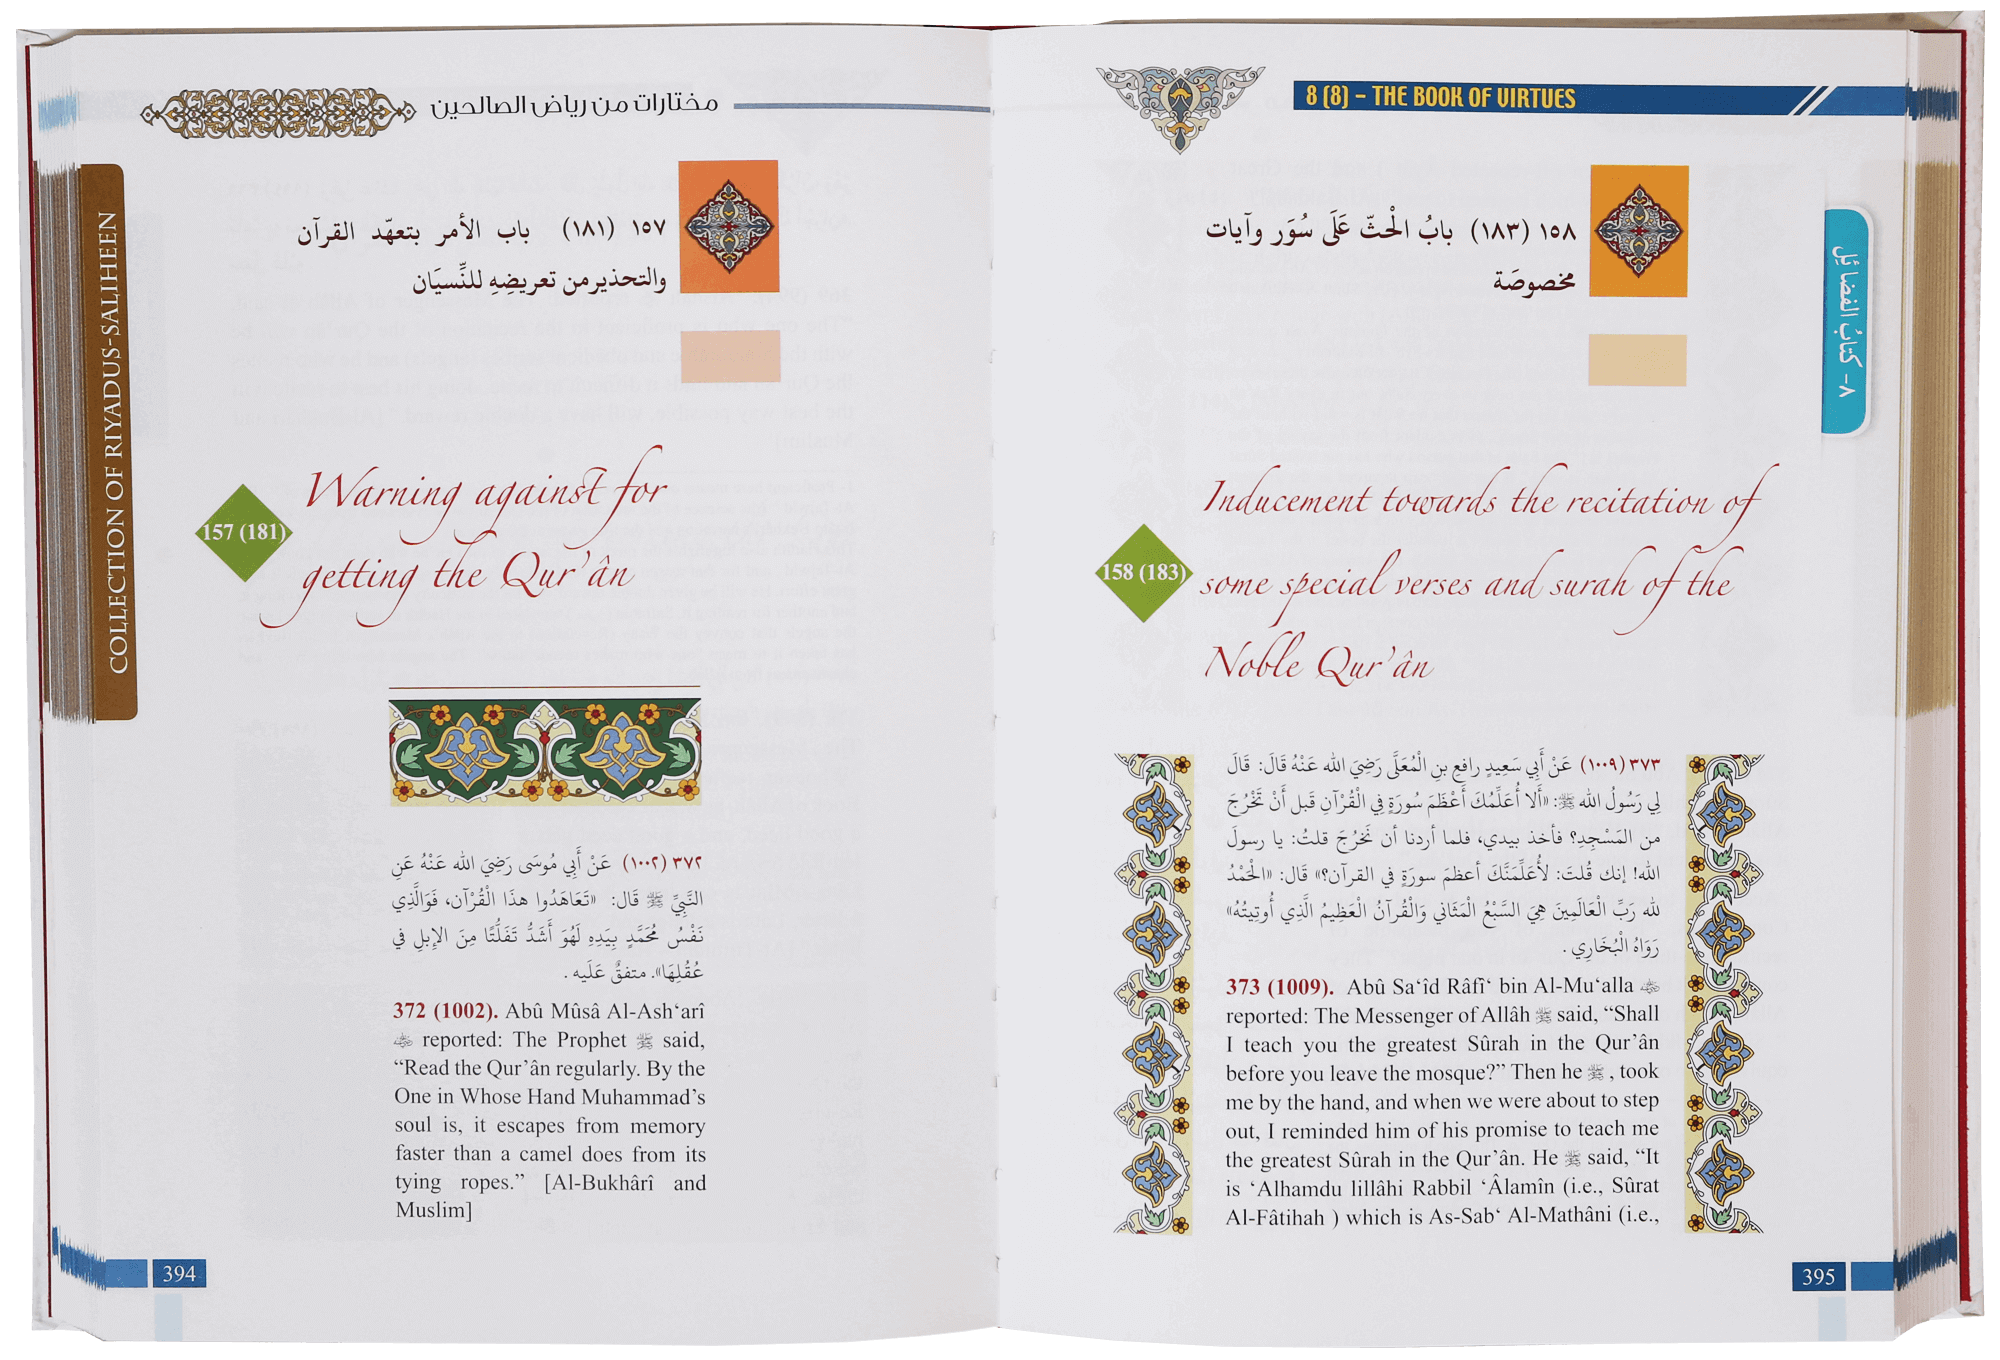 مختارات من رياض الصالحين
COLLECTION OF RIYADUS-SALIHEEN
١٥٧ (١٨١) باب الأمر بتعهّد القرآن
والتحذير من تعريضِهِ للنِّسيَان
157 (181)
Warning against for
getting the Qur’ân
٣٧٢ (١٠٠٢) عَنْ أَبِي مُوسَى رَضِيَ الله عَنْهُ عَنِ
النَّبِيِّ ﷺ قَالَ: «تَعَاهَدُوا هذَا الْقُرْآن، فَوَالَّذِي
نَفْسُ مُحَمَّدٍ بِيَدِهِ لَهُوَ أَشَدُّ تَفَلُّتًا مِنَ الإِبِلِ في
عُقُلِهَا». متفقٌ عَلَيه .
372 (1002). Abû Mûsâ Al-Ash‘arî
reported: The Prophet ﷺ said,
“Read the Qur’ân regularly. By the
One in Whose Hand Muhammad’s
soul is, it escapes from memory
faster than a camel does from its
tying ropes.” [Al-Bukhârî and
Muslim]
394
8 (8) – THE BOOK OF VIRTUES
٨- كتابُ الفضائل
١٥٨ (١٨٣) بابُ الْحثّ عَلَى سُوَر وآيات
مخصوصَة
158 (183)
Inducement towards the recitation of
some special verses and surah of the
Noble Qur’ân
٣٧٣ (١٠٠٩) عَنْ أَبِي سَعِيدٍ رافعِ بنِ الْمُعَلَّى رَضِيَ الله عَنْهُ قَالَ: قَالَ
لِي رَسُولُ الله ﷺ: «أَلا أُعَلِّمُكَ أَعْظَمَ سُورَةٍ فِي الْقُرْآنِ قَبل أَنْ تَخْرُجَ
من المَسْجِدِ؟ فأخذ بيدي، فلما أردنا أن نَخرُجَ قلتُ: يا رسولَ
الله! إنك قُلتَ: لأُعَلِّمَنَّكَ أعظمَ سورَةٍ في القرآن؟» قال: «الْحَمْدُ
لله رَبِّ الْعَالَمِينَ هِيَ السَّبْعُ الْمَثَاني وَالْقُرآنُ الْعَظِيمُ الَّذِي أُوتِيتُهُ»
رَوَاهُ الْبُخَارِي .
373 (1009). Abû Sa‘îd Râfî‘ bin Al-Mu‘alla
reported: The Messenger of Allâh ﷺ said, “Shall
I teach you the greatest Sûrah in the Qur’ân
before you leave the mosque?” Then he ﷺ , took
me by the hand, and when we were about to step
out, I reminded him of his promise to teach me
the greatest Sûrah in the Qur’ân. He ﷺ said, “It
is ‘Alhamdu lillâhi Rabbil ‘Âlamîn (i.e., Sûrat
Al-Fâtihah ) which is As-Sab‘ Al-Mathâni (i.e.,
395